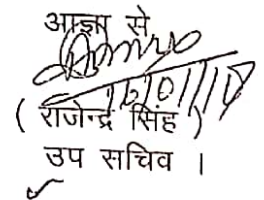 आज्ञा से
( राजेन्द्र सिंह )
उप सचिव ।